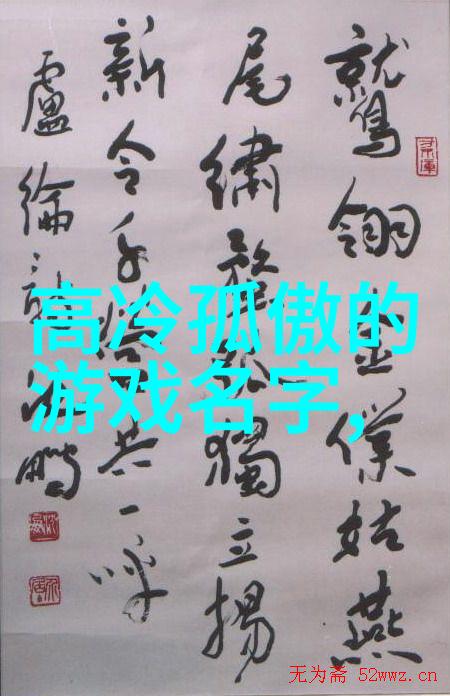 鷲翎金僕姑燕
尾繡蝥弧獨立揚
新令千營共一呼
盧綸詩 鵬
高冷孤傲的
游戏名字,
无为斋 52wwz.cn